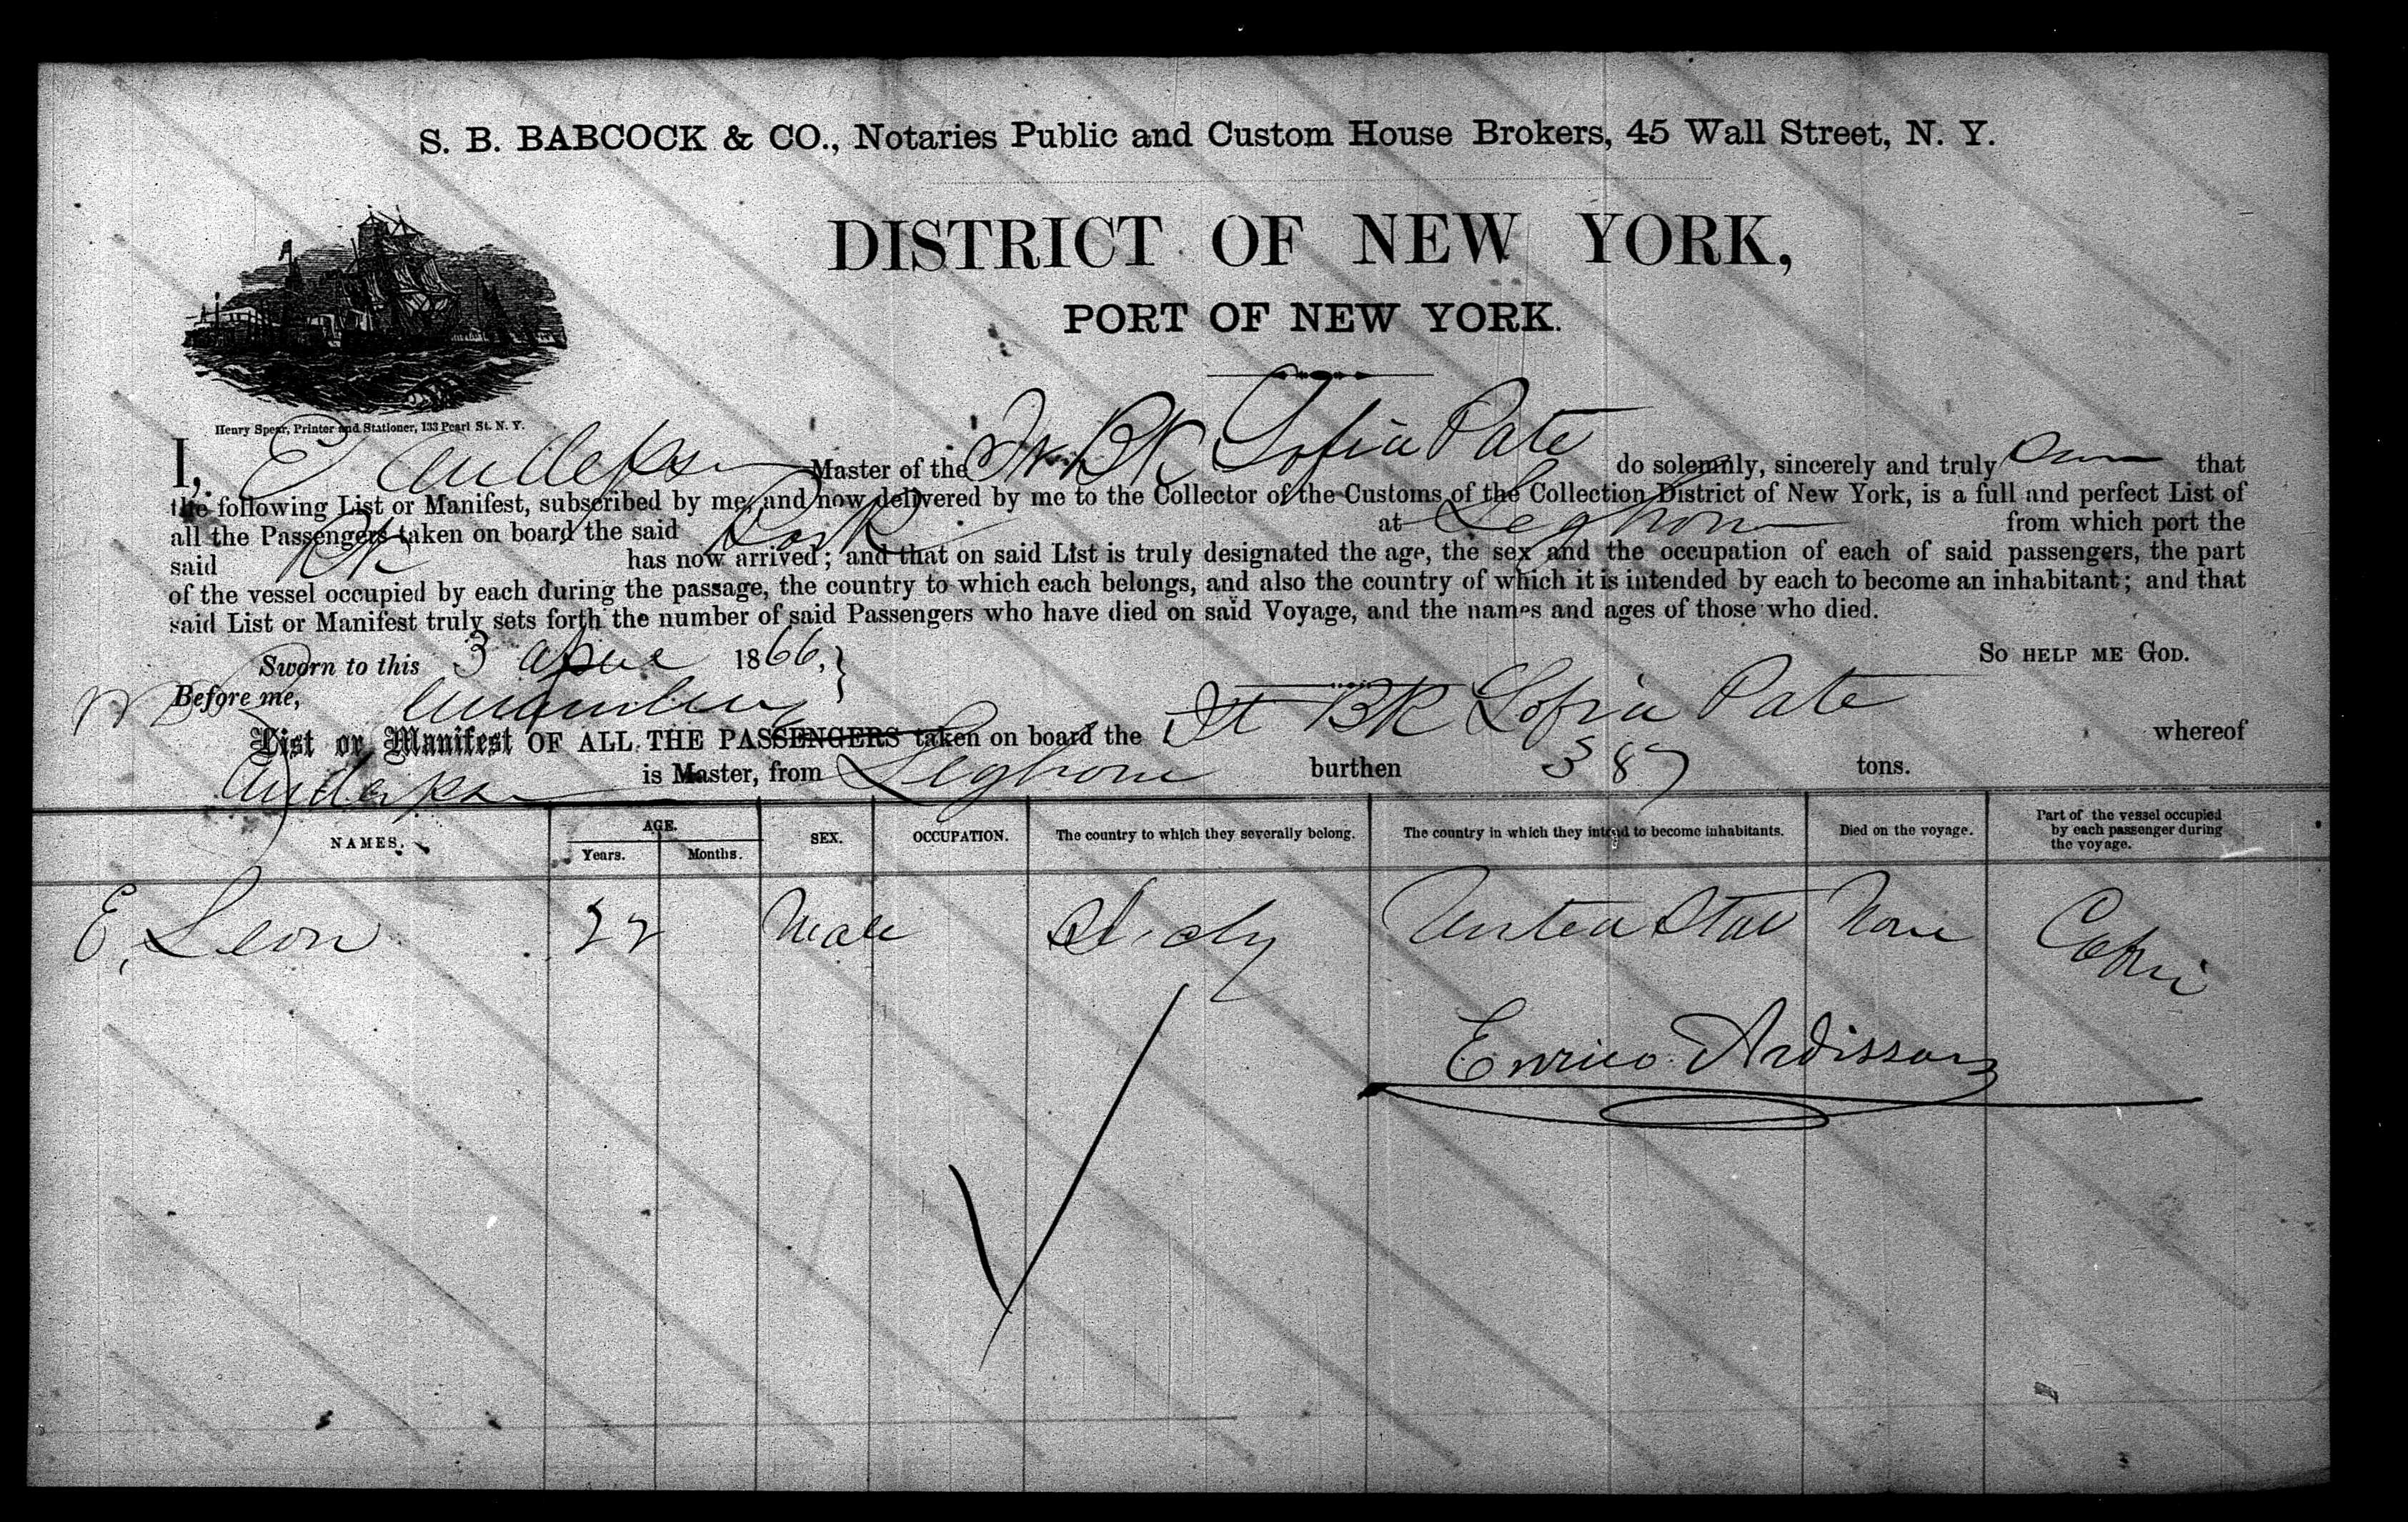 S. B. BABCOCK & CO., Notaries Public and Custom House Brokers, 45 Wall Street, N. Y.
DISTRICT OF NEW YORK,
PORT OF NEW YORK.
Henry Spear, Printer and Stationer, 133 Pearl St. N. Y.
I, E Master of the BK Sofia Pate do solemnly, sincerely and truly that
the following List or Manifest, subscribed by me, and now delivered by me to the Collector of the Customs of the Collection District of New York, is a full and perfect List of
all the Passengers taken on board the said Bark at Leghorn from which port the
said Bk has now arrived; and that on said List is truly designated the age, the sex and the occupation of each of said passengers, the part
of the vessel occupied by each during the passage, the country to which each belongs, and also the country of which it is intended by each to become an inhabitant; and that
said List or Manifest truly sets forth the number of said Passengers who have died on said Voyage, and the names and ages of those who died.
Sworn to this 3 April 1866, SO HELP ME GOD.
Before me,
List or Manifest OF ALL THE PASSENGERS taken on board the It BK Sofia Pate whereof
is Master, from Leghorn burthen 387 tons.
NAMES. AGE. Years. Months. SEX. OCCUPATION. The country to which they severally belong. The country in which they intend to become inhabitants. Died on the voyage. Part of the vessel occupied by each passenger during the voyage.
E, Leon 22 Male Italy United Stat None Cabin
Enrico Ardisson